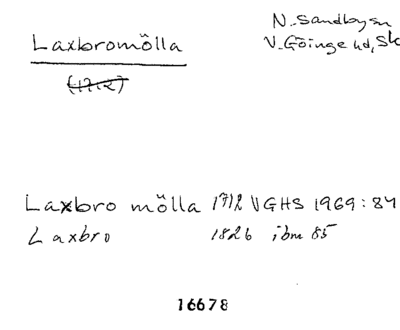 Laxbromölla
N. Sandbysn
V. Göinge hd, Sk
(1712)
Laxbro mölla 1712 VGHS 1969:84
Laxbro 1826 ibm 85
16678